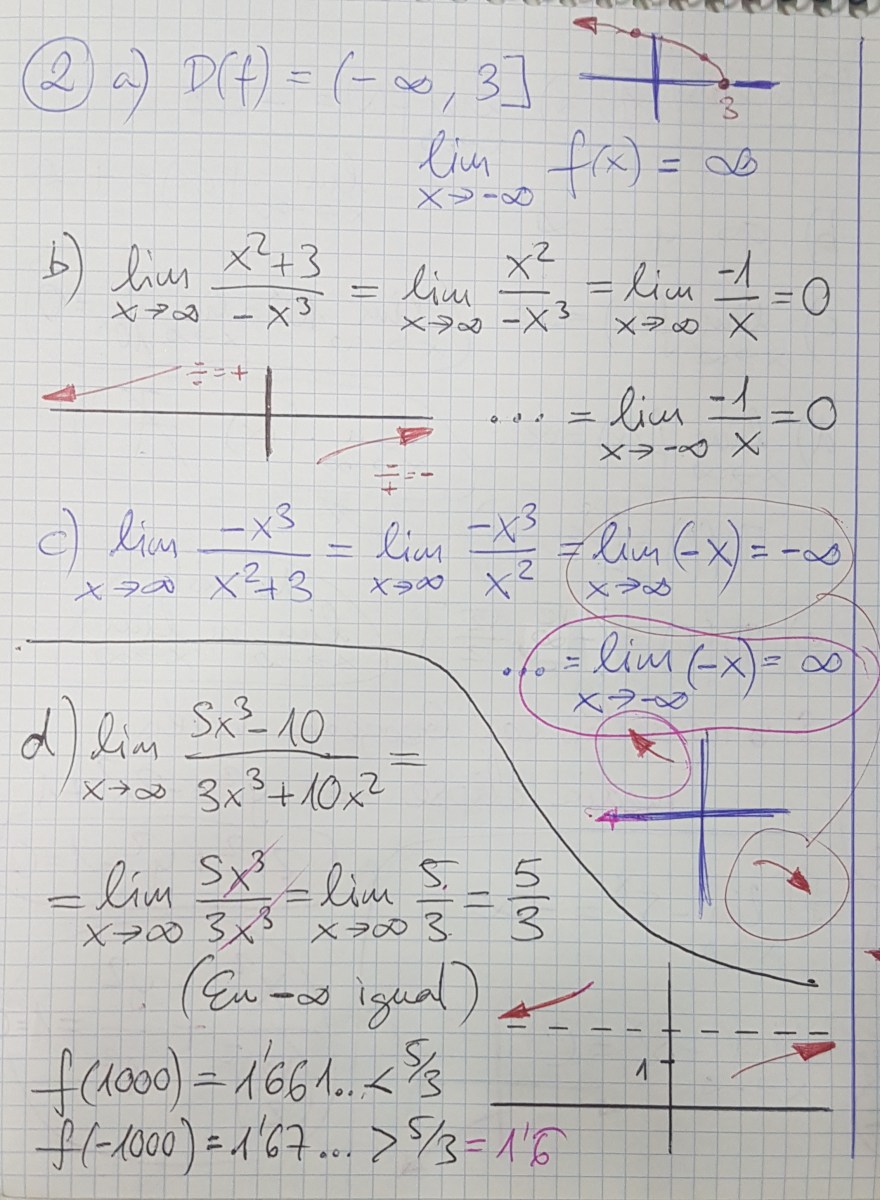 2 a) D(f) = (-∞, 3]
3
lim x→-∞ f(x) = ∞
b) lim x→∞ (x²+3)/(-x³) = lim x→∞ x²/(-x³) = lim x→∞ -1/x = 0
-/- = +
... = lim x→-∞ -1/x = 0
-/+ = -
c) lim x→∞ -x³/(x²+3) = lim x→∞ -x³/x² = lim x→∞ (-x) = -∞
... = lim x→-∞ (-x) = ∞
d) lim x→∞ (5x³-10)/(3x³+10x²) =
= lim x→∞ 5x³/3x³ = lim x→∞ 5/3 = 5/3
(En -∞ igual)
1
f(1000) = 1'661... < 5/3
f(-1000) = 1'67... > 5/3 = 1'6